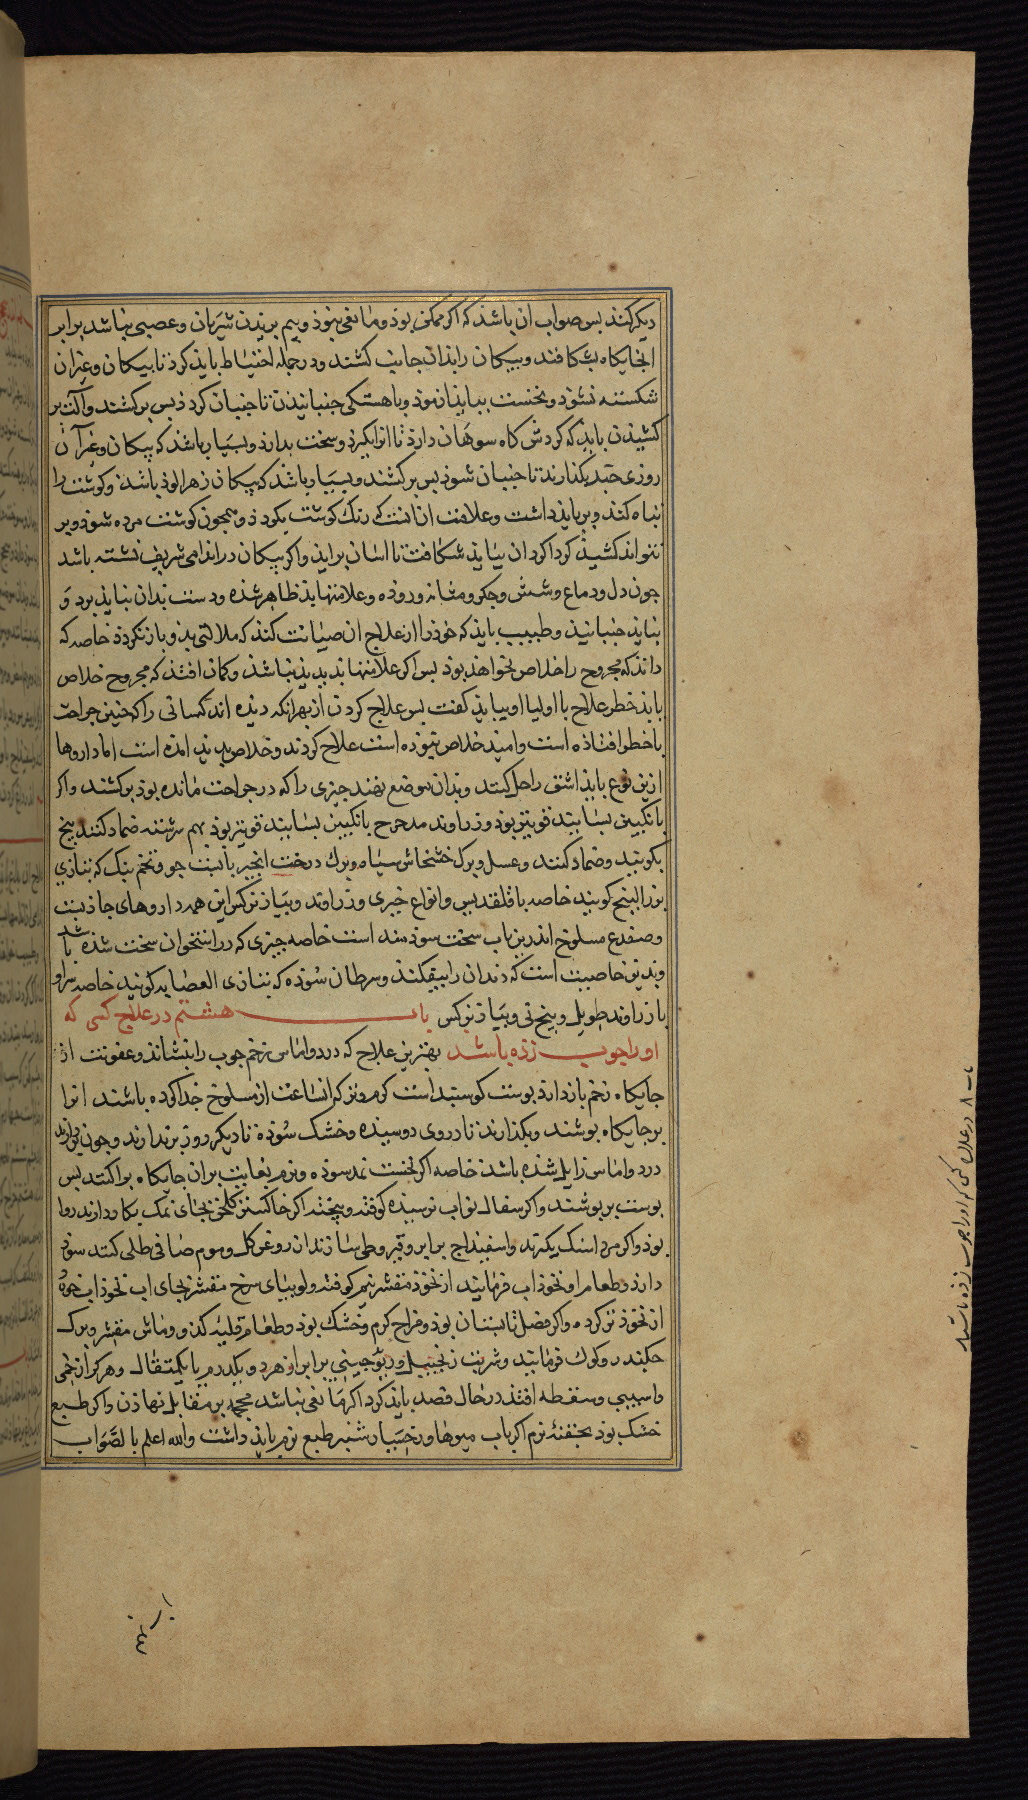 دیکر کنند بس صواب ان باشذ که اکر ممکن بوذ و مانعی نبوذ و بیم بریدن شریان و عصبی نباشد برابر
انجایکاه بشکافند و بیکان را بذان جانب کشند و در جمله احتیاط بایذ کرد تا بیکان و غیر ان
شکسته نشوذ و نخست بیایذ ازموذ و باهستکی جنبانیدن تا جنبان کردذ بس برکشند و الت بر
کشیذن بایذ که کردش کاه سوهان دارذ تا انرا بکیرذ و سخت بدارذ و بسیار باشذ که بیکان و غیر آن
روزی جند بکذارند تا جنبان شوذ بس برکشند و بسیار باشذ که بیکان زهرالوذ باشذ و کوشت را
تباه کند و بر بایذ داشت و علامت ان انست که رنک کوشت بکردذ و همجون کوشت مرده شوذ و بر
نتواند کشیذ کرداکرد ان ببایذ شکافت تا اسان برایذ و اکر بیکان در اندامی شریف نشسته باشد
جون دل و دماغ و شش و جکر و مثانه و روذه و علامتها بد ظاهر شذه دست بدان نبایذ برد و
نبایذ جنبانیذ و طبیب بایذ که خوذ را از علاج ان صیانت کند که ملالتی بذو باز نکردذ خاصه که
داند که مجروح را خلاص نخواهذ بوذ بس اکر علامتها بد بدید نباشذ و کمان افتذ که مجروح خلاص
یابد خطر علاج با اولیا او ببایذ کفت بس علاج کردن از بهر انکه دیذه اند کسانی را که جنین جراحت
با خطر افتاذه است و امید خلاص نبوذه است علاج کردند و خلاص بدید امده است اما داروها
ازین نوع بایذ اشق را حل کنند و بدان موضع نهند جیزی را که در جراحت مانده بوذ برکشد و اکر
با نکبین بسایند قویتر بوذ و زراوند مدحرج با نکبین بسایند قویتر بوذ بهم سرشته ضماد کنند بیخ
بکوبند و ضماد کنند و عسل و برک خشخاش سیاه و برک درخت انجیر با بست جو و تخم بنک که بتازی
بزر البنج کویند خاصه با قلقدیس و انواع خیری و زراوند و بیاز نرکس این همه داروهای جاذبست
و ضفدع مسلوخ اندرین باب سخت سوذمند است خاصه جیزی که در استخوان سخت شذه باشد
و بدین خاصیت است که دندان را بیفکند و سرطان سوذه که بتازی العضایه کویند خاصه سر او
با زراوند طویل و بیخ نی و بیاز نرکس باب هشتم در علاج کسی که
او را جوب زذه باشد بهترین علاج که درد و اماس زخم جوب را بنشاند و عفونت از
جایکاه زخم باز دارذ بوست کوسبند است کرم و نر که انساعت از مسلوخ جذا کرده باشند انرا
بر جایکاه بوشند و بکذارند تا بر وی دوسیذه و خشک شوذه تا دیکر روز بر ندارند و جون بردارند
درد و اماس زایل شذه باشذ خاصه اکر نخست نمد سوذه و نرم بغایت بران جایکاه براکنند بس
بوست بر بوشند و اکر سفال نواب نرسیذه کوفته و بیخته اکر خاکستر کلخن بجای نمک بکار دارند روا
بوذ و اکر مرداسنک یکتهد و اسفیذاج برابر و قیروطی سازند ان روغن کل و موم صافی طلی کنند سوذ
دارذ و طعام او نخوذاب فرمایند از نخوذ مقشر نیم کوفته و لوبیای سرخ مقشر بجای اب نخوذاب خورد
از نخوذ تر کرده و اکر فصل تابستان بوذ و مزاج کرم و خشک بوذ و طعام قلیه کذو و ماش مقشر و برک
جکندر و کوک فرمایند و شربت زنجبیل و ریوجینی برابر از هر دو یکدرم با یکمثقال و هر کرا زخمی
و اسیبی و سقطه افتذ در حال فصد بایذ کرد اکر مانعی نباشد محجمه بر مقابل نهاذن و اکر طبع
خشک بوذ بحقنهٔ نرم اکر باب میوها و بخیار شنبر طبع نرم بایذ داشت والله اعلم بالصّوَاب
باب ۸ در علاج کسی که او را جوب زذه باشد